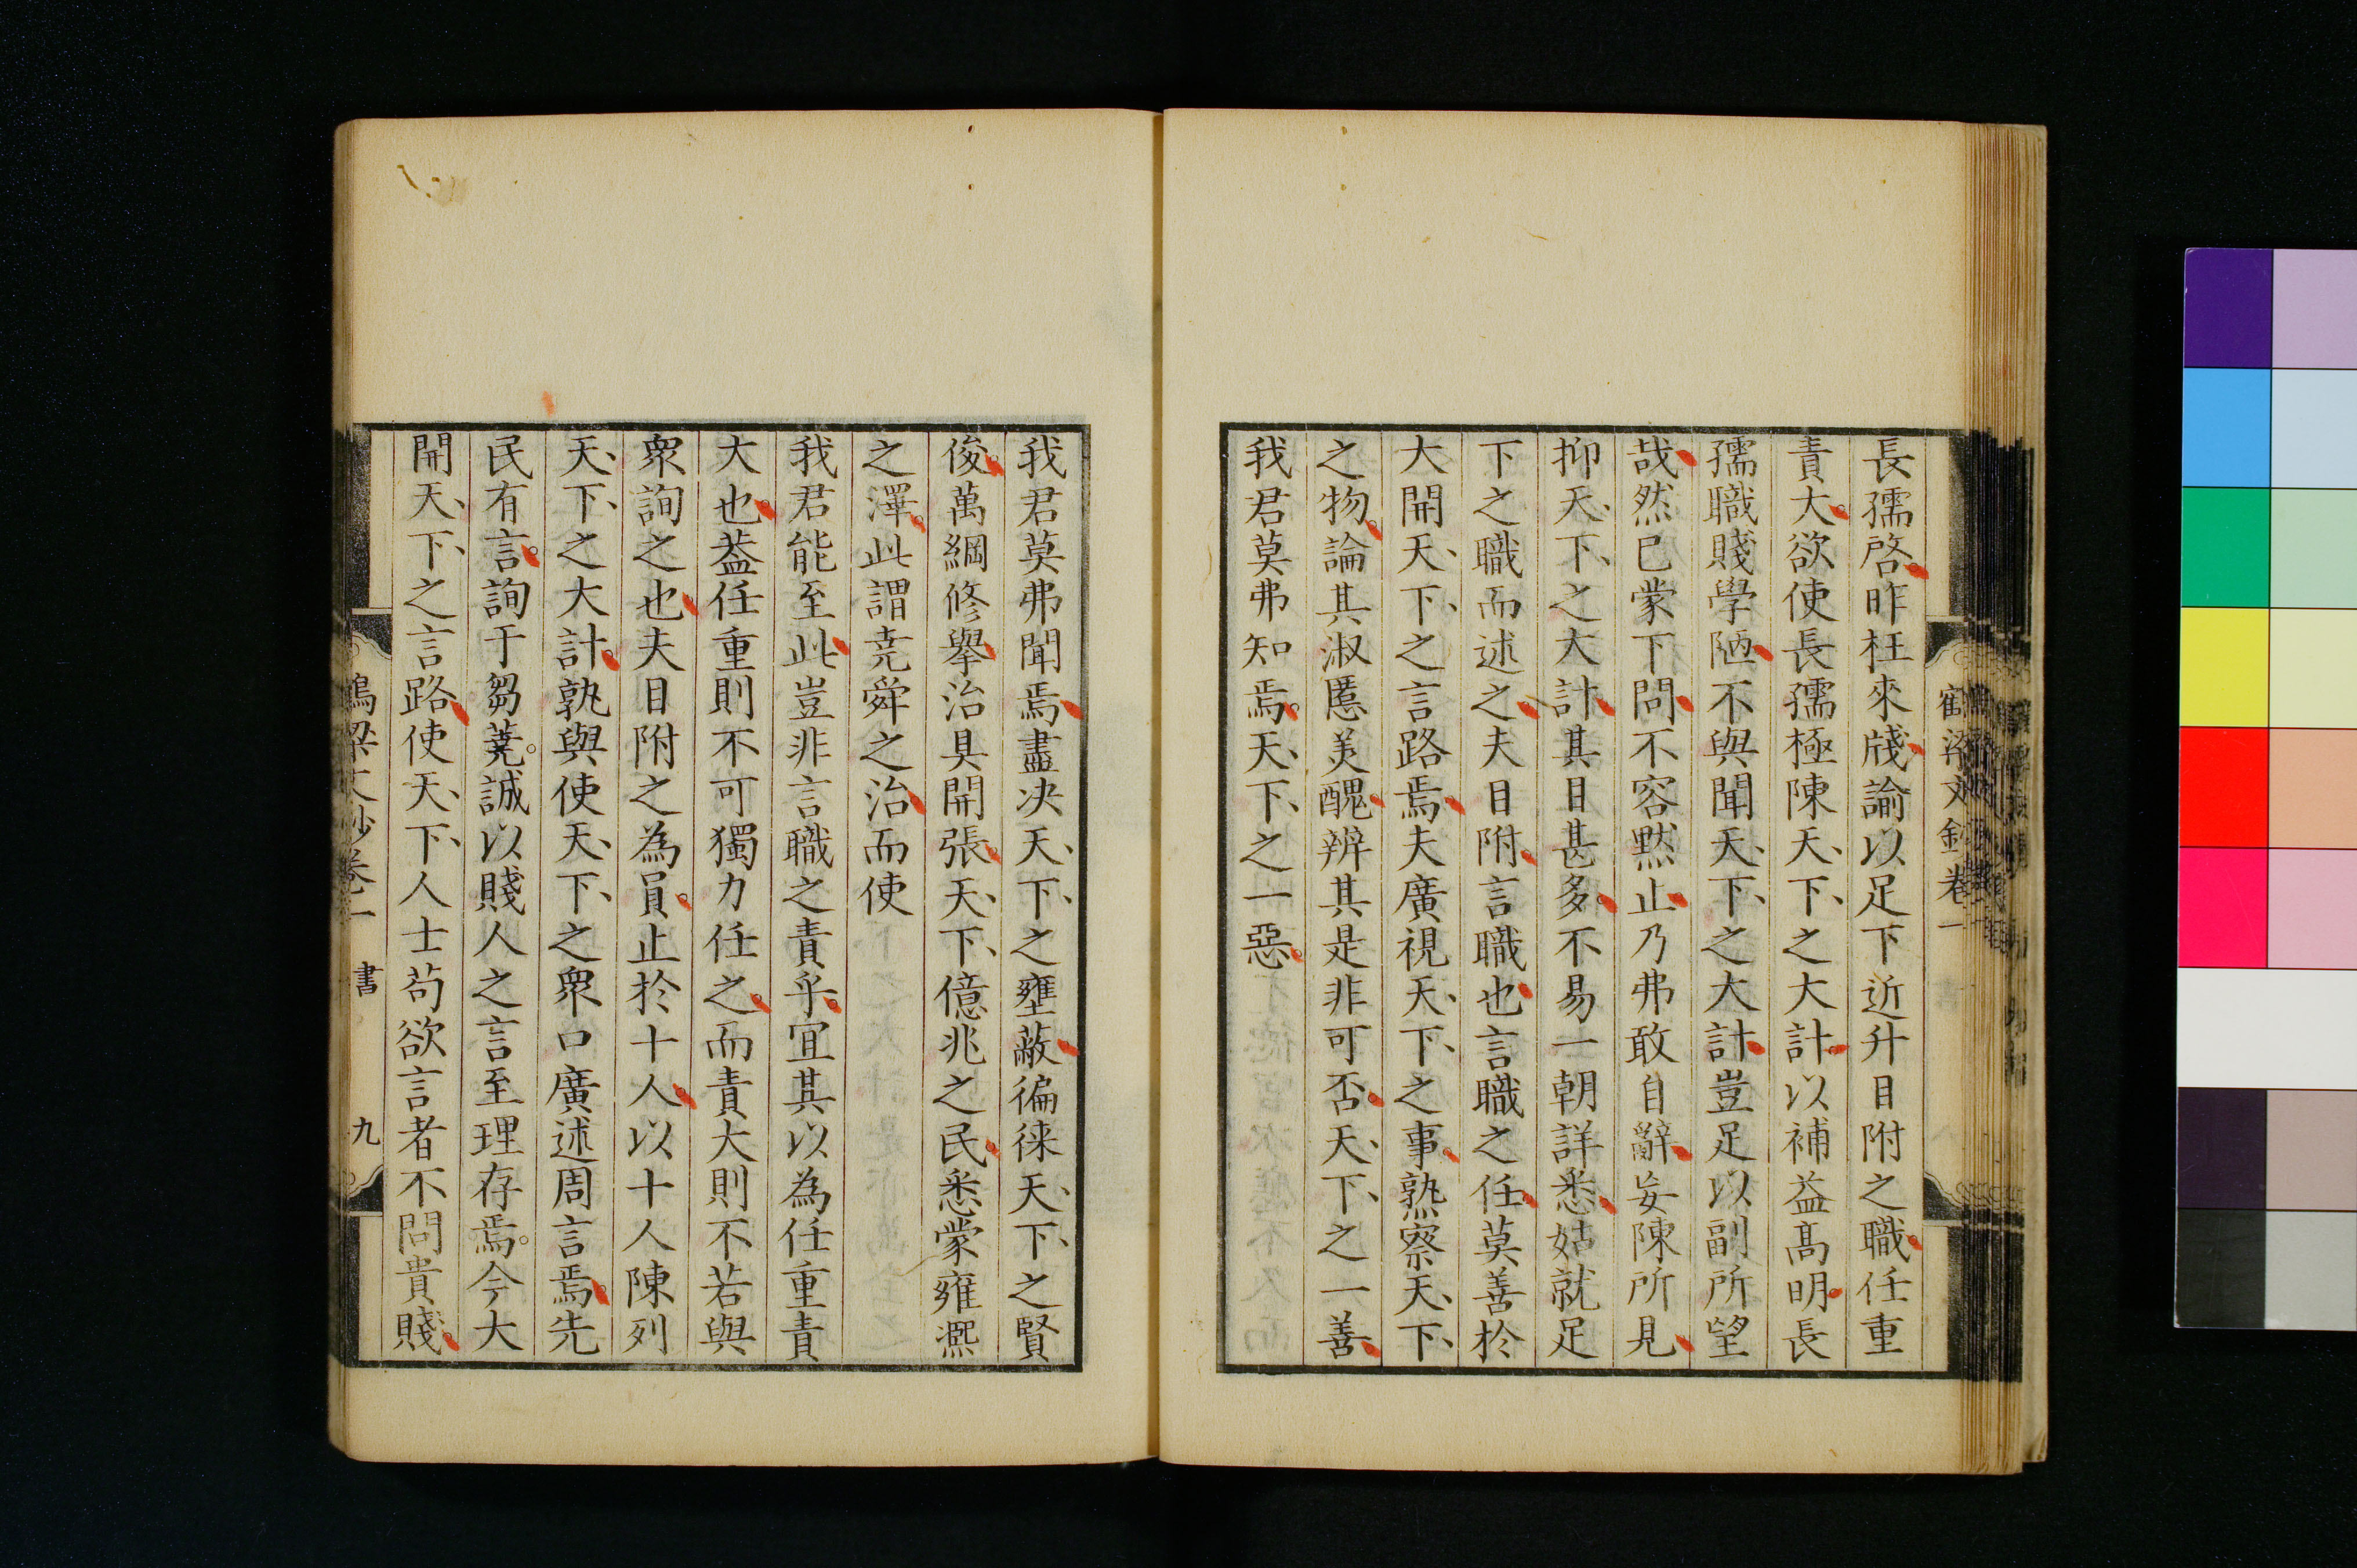 長孺啓昨枉來牋諭以足下近升目附之職任重
責大欲使長孺極陳天下之大計以補益髙明長
孺職賤學陋不與聞天下之大計豈足以副所望
哉然已蒙下問不容黙止乃弗敢自辭妄陳所見
抑天下之大計其目甚多不易一朝詳悉姑就足
下之職而述之夫目附言職也言職之任莫善於
大開天下之言路焉夫廣視天下之事熟察天下
之物論其淑慝美醜辨其是非可否天下之一善
我君莫弗知焉天下之一惡
我君莫弗聞焉盡决天下之壅蔽徧徠天下之賢
俊萬綱修擧治具開張天下億兆之民悉蒙雍凞
之澤此謂堯舜之治而使
我君能至此豈非言職之責乎冝其以為任重責
大也葢任重則不可獨力任之而責大則不若與
衆詢之也夫目附之為員止於十人以十人陳列
天下之大計孰與使天下之衆口廣述周言焉先
民有言詢于芻蕘誠以賤人之言至理存焉今大
開天下之言路使天下人士苟欲言者不問貴賤
鶴梁文鈔卷一 書 九